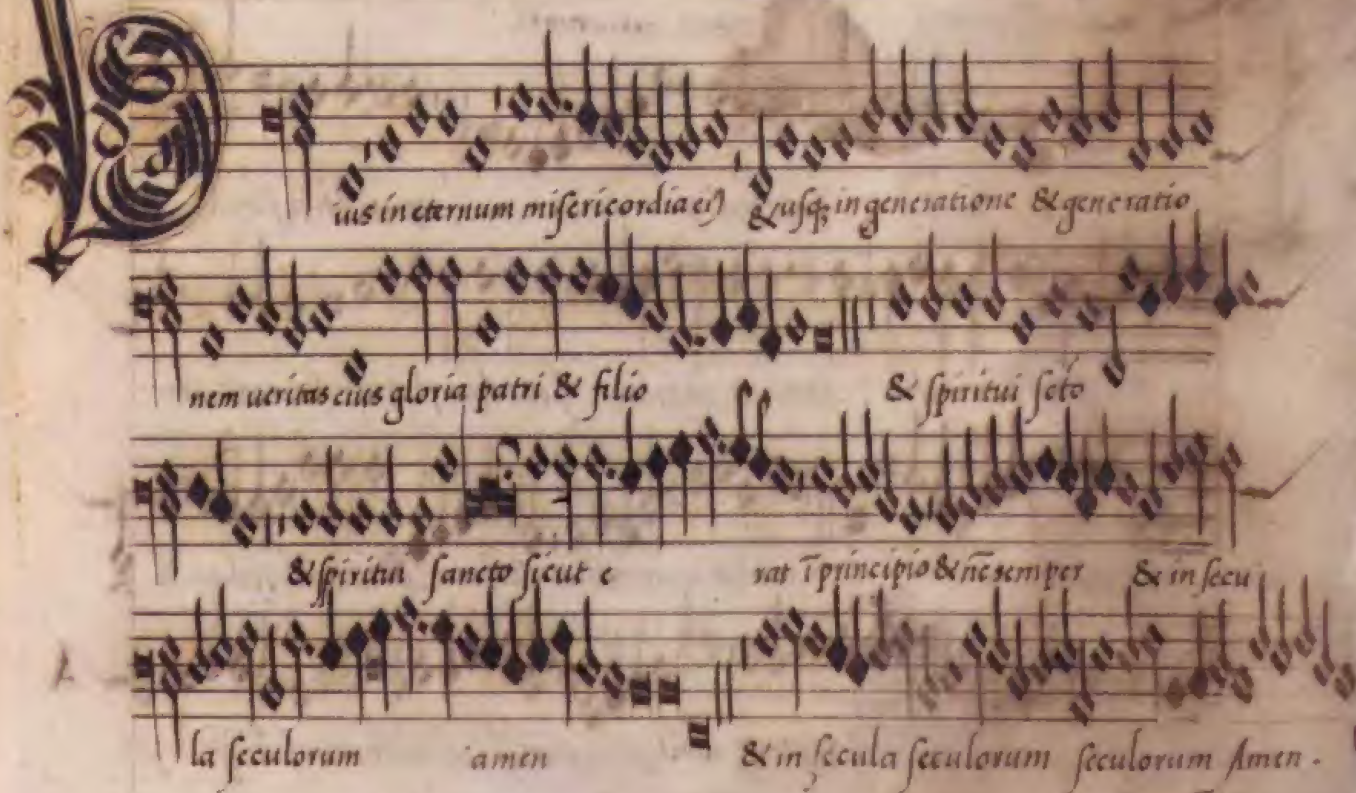 ius in eternum misericordia ei⁹ & usq; in generatione & generatio
nem ueritas eius gloria patri & filio & spiritui scto
& spiritui sancto sicut e rat ī principio & nc̄ semper & in secu
la seculorum amen & in secula seculorum seculorum Amen .